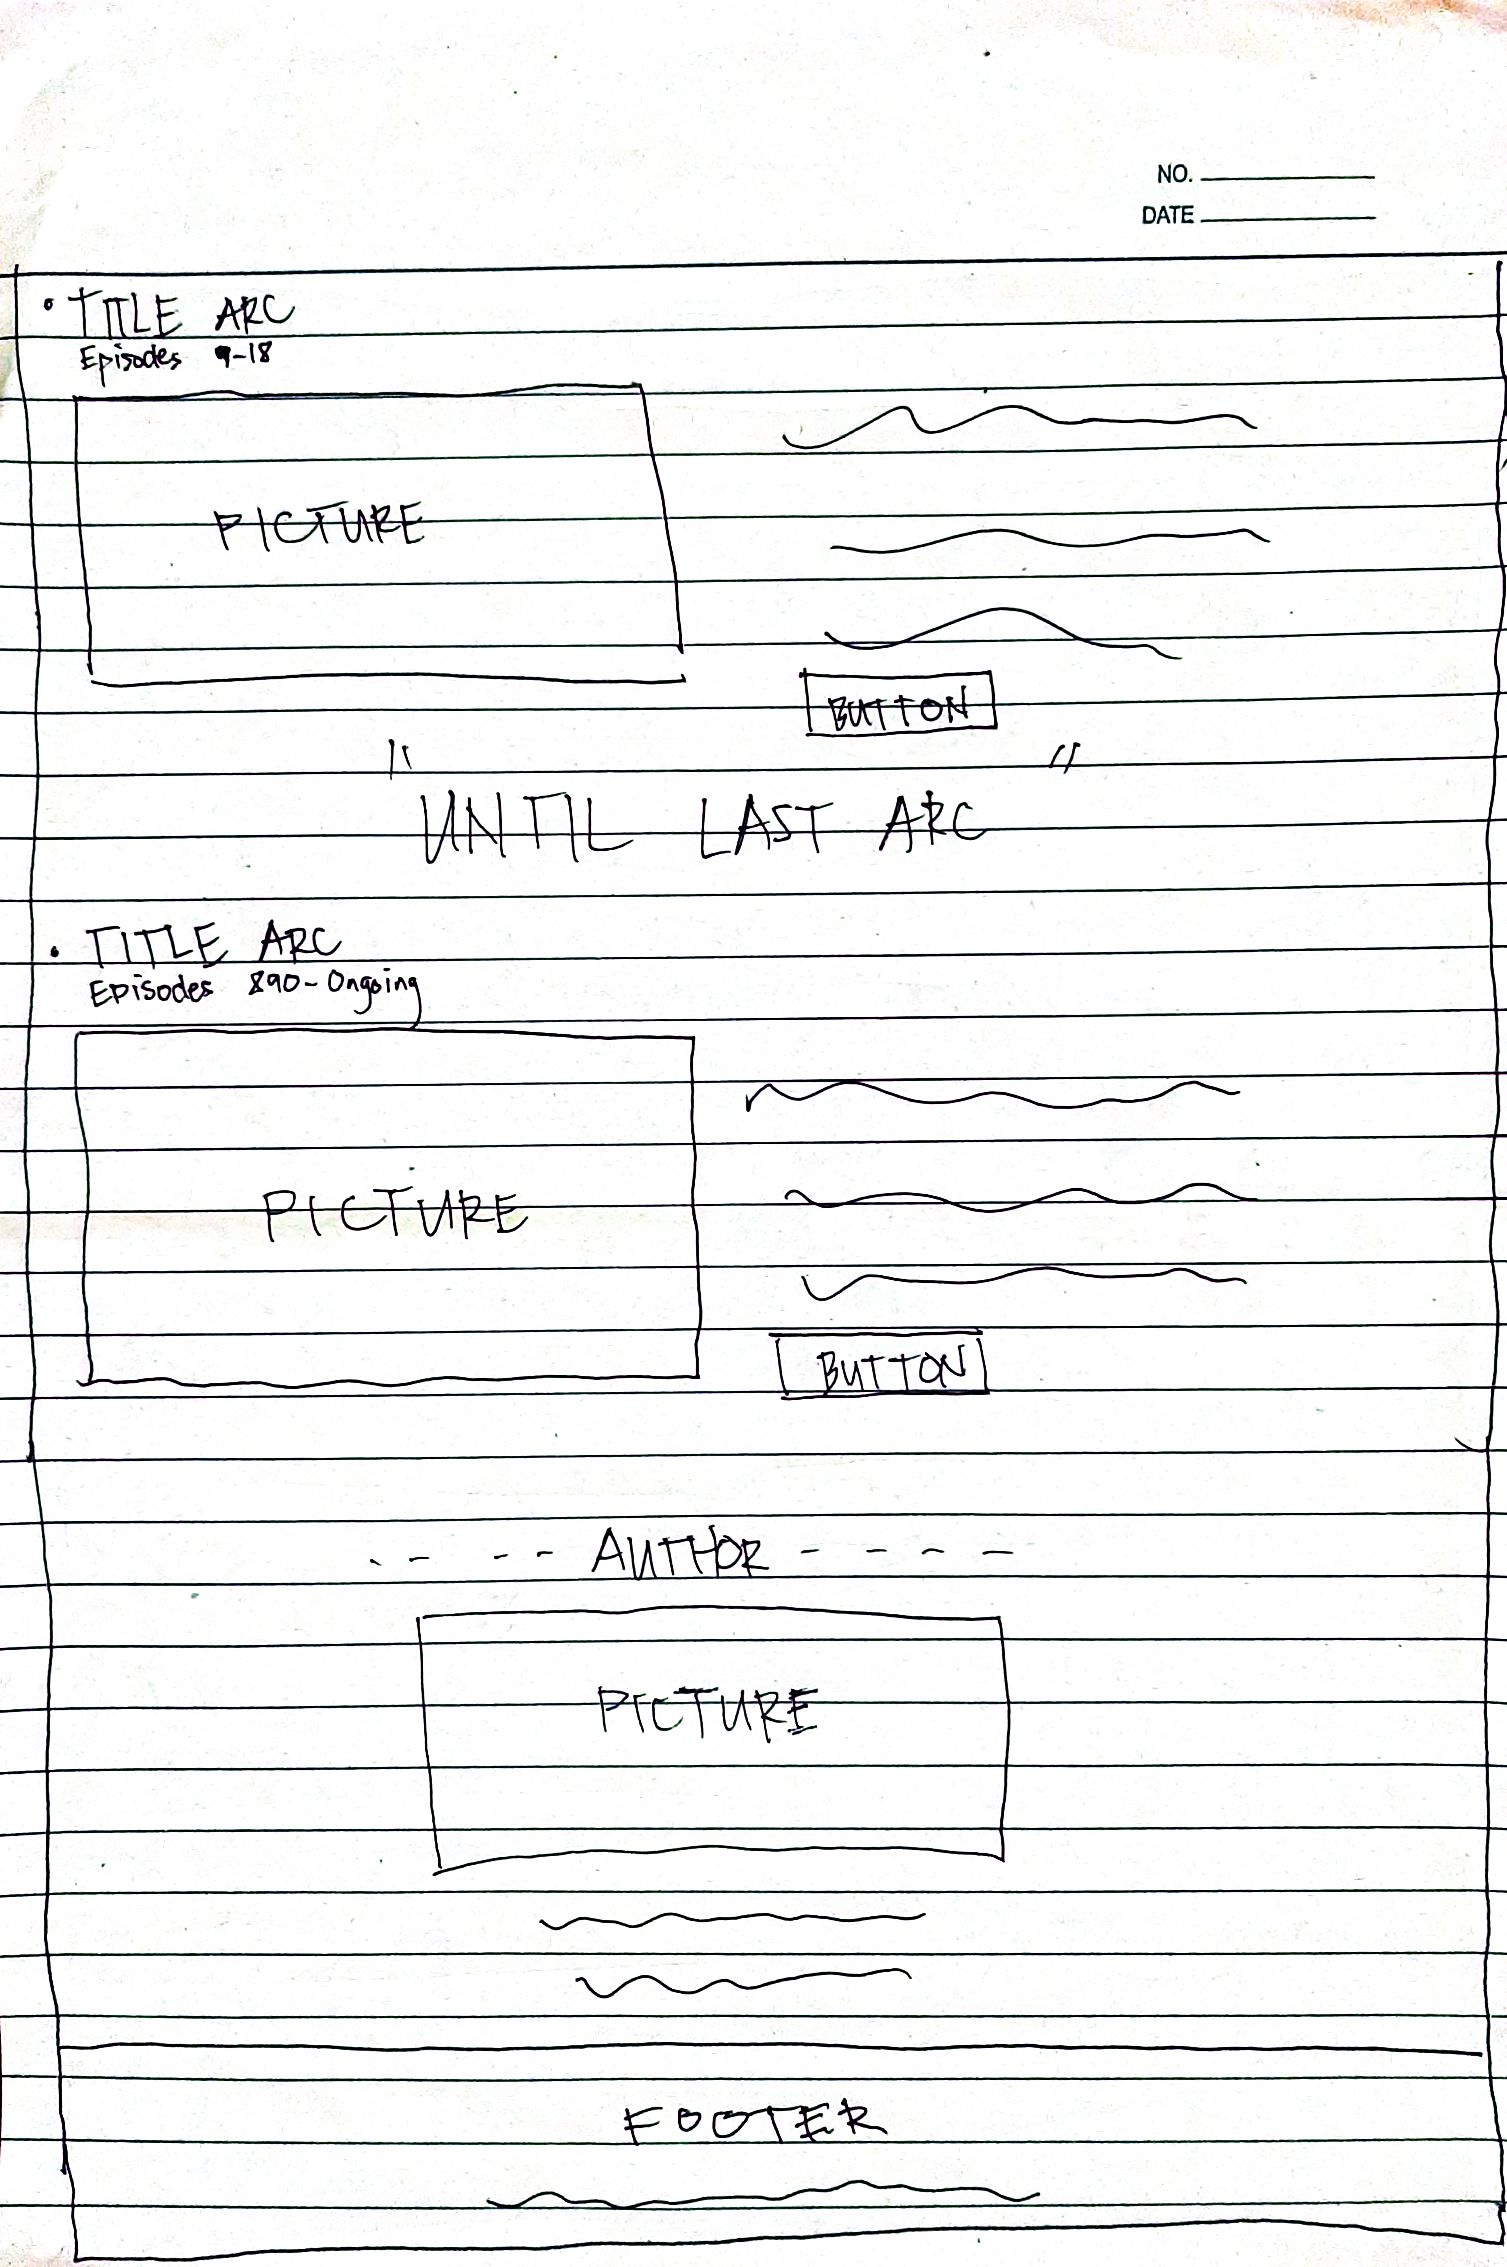 NO.
DATE
• TITLE ARC
Episodes 9-18
PICTURE
BUTTON
" "
UNTIL LAST ARC
• TITLE ARC
Episodes 890-Ongoing
PICTURE
BUTTON
-- -- AUTHOR - - - -
PICTURE
FOOTER